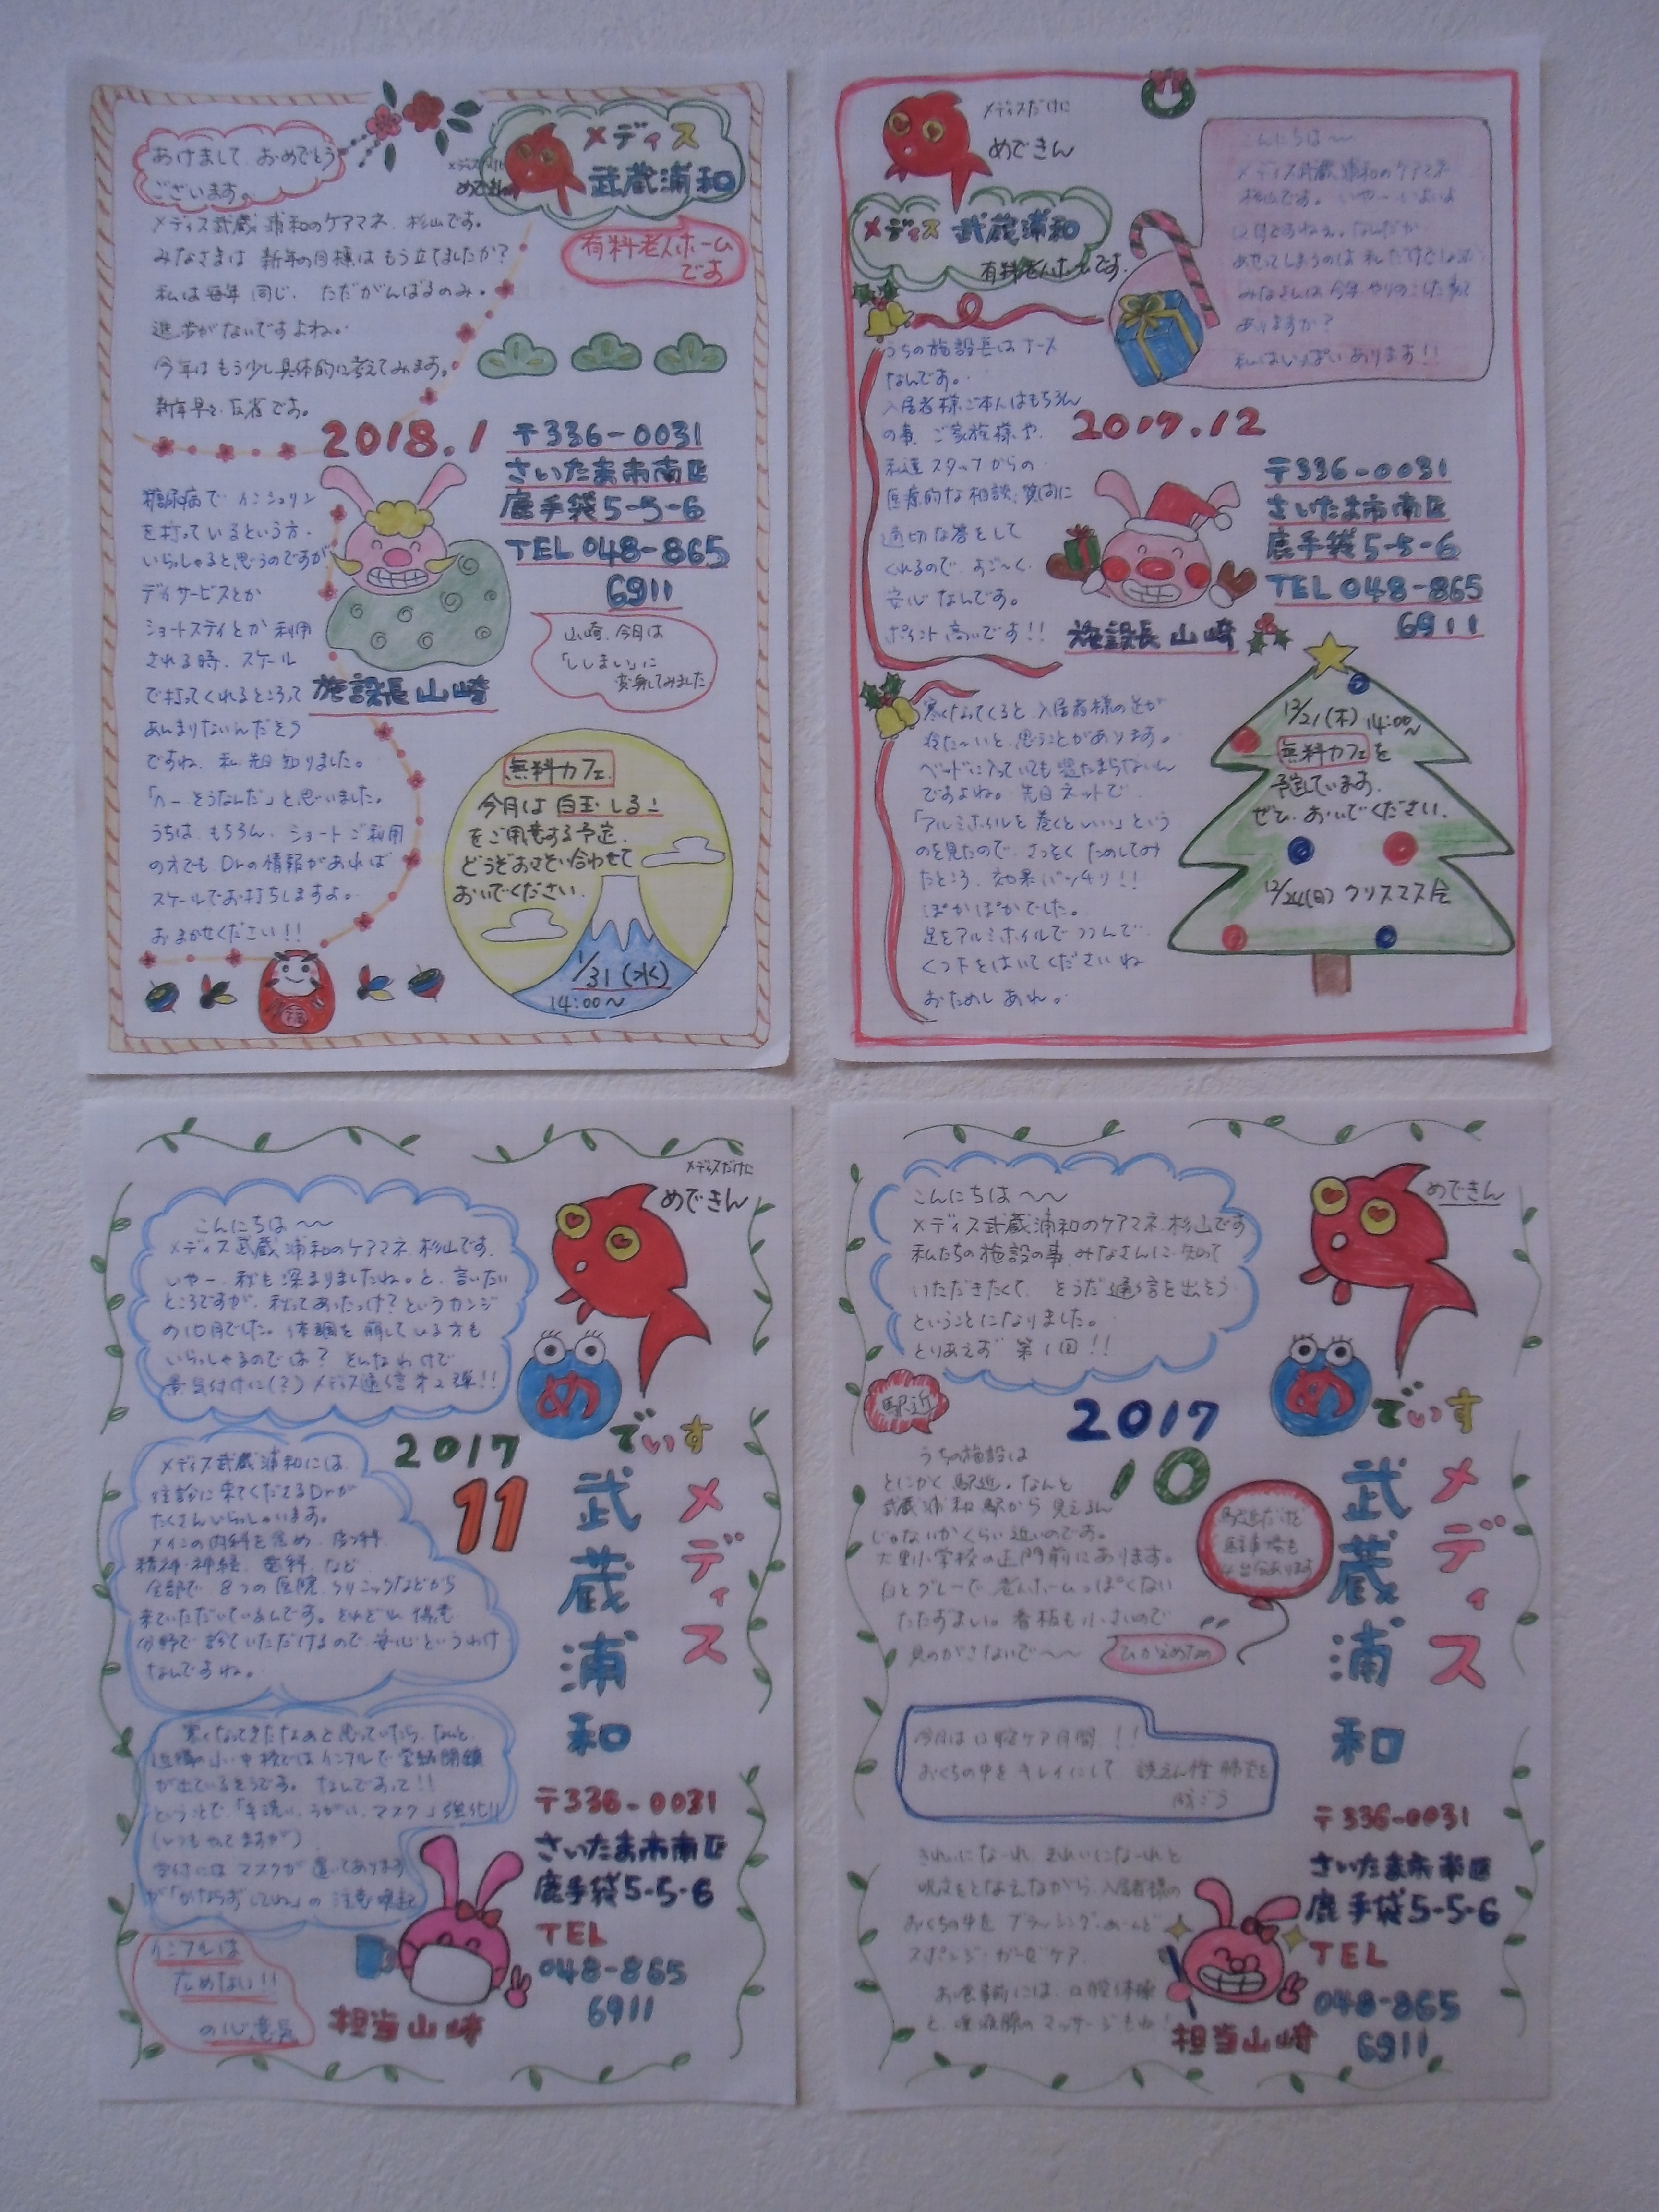 あけまして おめでとう
ございます。
メディスだけに
めできん
メディス
武蔵浦和
有料老人ホーム
です
メディス武蔵浦和のケアマネ、杉山です。
みなさまは 新年の目標は もう立てましたか?
私は毎年 同じ、ただがんばるのみ。
進歩がないですよね。
今年は もう少し具体的に考えてみます。
新年早々 反省です。
2018.1
〒336-0031
さいたま市南区
鹿手袋5-5-6
TEL 048-865
6911
糖尿病で インシュリン
を打っているという方、
いらっしゃると思うのですが
デイサービスとか
ショートステイとか 利用
される時、スケール
で打ってくれるところって
あんまりないんだそう
ですね、私、先日 知りました。
「へー そうなんだ」と思いました。
うちは、もちろん、ショートご利用
の方でも Drの情報があれば
スケールでお打ちしますよ。
おまかせください!!
施設長 山崎
山崎、今月は
「ししまい」に
変身してみました
無料カフェ
今月は 白玉しるこ
をご用意する予定。
どうぞおさそい合わせて
おいでください。
1/31(水)
14:00~
福
メディスだけに
めできん
メディス 武蔵浦和
有料老人ホームです。
こんにちは~~
メディス武蔵浦和のケアマネ
杉山です。いやーいよいよ
12月ですねぇ。なんだか
あせってしまうのは 私だけでしょうか
みなさんは 今年 やりのこした事って
ありますか?
私はいっぱい あります!!
うちの施設長は ナース
なんです。
入居者様ご本人はもちろん
の事、ご家族様や、
私達スタッフからの
医療的な相談、質問に
適切な答をして
くれるので、すご~く
安心なんです。
ポイント高いです!!
2017.12
〒336-0031
さいたま市南区
鹿手袋5-5-6
TEL 048-865
6911
施設長 山崎
寒くなってくると、入居者様の足が
冷た~いと、思うことがあります。
ベッドに入っていても 温たまらないん
ですよね。先日 ネットで、
「アルミホイルを 巻くといい」という
のを見たので、さっそく ためしてみ
たところ、効果バッチリ!!
ぽかぽかでした。
足をアルミホイルで つつんで
くつ下をはいてくださいね
おためしあれ。
12/21(木) 14:00~
無料カフェを
予定しています。
ぜひ、おいでください。
12/24(日) クリスマス会
メディスだけに
めできん
こんにちは~~
メディス武蔵浦和のケアマネ、杉山です。
いやー、秋も深まりましたね。と、言いたい
ところですが、秋ってあったっけ?というカンジ
の10月でした。体調を崩している方も
いらっしゃるのでは? そんなわけで
景気付けに(?)メディス通信第2弾!!
め
でぃす
2017
11
メディス
武蔵浦和
メディス武蔵浦和には
往診に来てくださるDrが
たくさんいらっしゃいます。
メインの内科を含め、皮フ科
精神・神経、歯科、など
全部で 8つの医院、クリニックなどから
来ていただいているんです。それぞれ 得意
分野で 診ていただけるので 安心というわけ
なんですね。
寒くなってきたなぁと思っていたら、なんと
近隣の小・中校ではインフルで学級閉鎖
が出ているそうです。なんですって!!
ということで、「手洗い、うがい、マスク」強化!!
(いつもやってますが)
受付には マスクが置いてあります
が「かならずしてね」の 注意喚起
インフルは
ためない!!
の心意気
〒336-0031
さいたま市南区
鹿手袋5-5-6
TEL
048-865
6911
担当 山崎
めできん
こんにちは~~
メディス武蔵浦和のケアマネ、杉山です
私たちの施設の事、みなさんに 知って
いただきたくて、そうだ通信を出そう
ということになりました。
とりあえず 第1回!!
め
でぃす
2017
10
メディス
武蔵浦和
駅近
うちの施設は
とにかく 駅近。なんと
武蔵浦和駅から 見えるん
じゃないかくらい 近いのです。
大里小学校の正門前にあります。
白とグレーで、老人ホームっぽくない
たたずまい。看板も小さいので
見のがさないで~~
ひかえめなの
駅近だけど
駐車場も
4台分あります
今月は 口腔ケア月間!!
おくちの中を キレイにして 誤えん性 肺炎を
防ごう
きれいになーれ、きれいになーれと
呪文をとなえながら、入居者様の
おくちの中を ブラッシング、あーんど
スポンジ・ガーゼケア。
お食事前には、口腔体操
と、唾液腺の マッサージもね!
〒336-0031
さいたま市南区
鹿手袋5-5-6
TEL
048-865
6911
担当 山崎